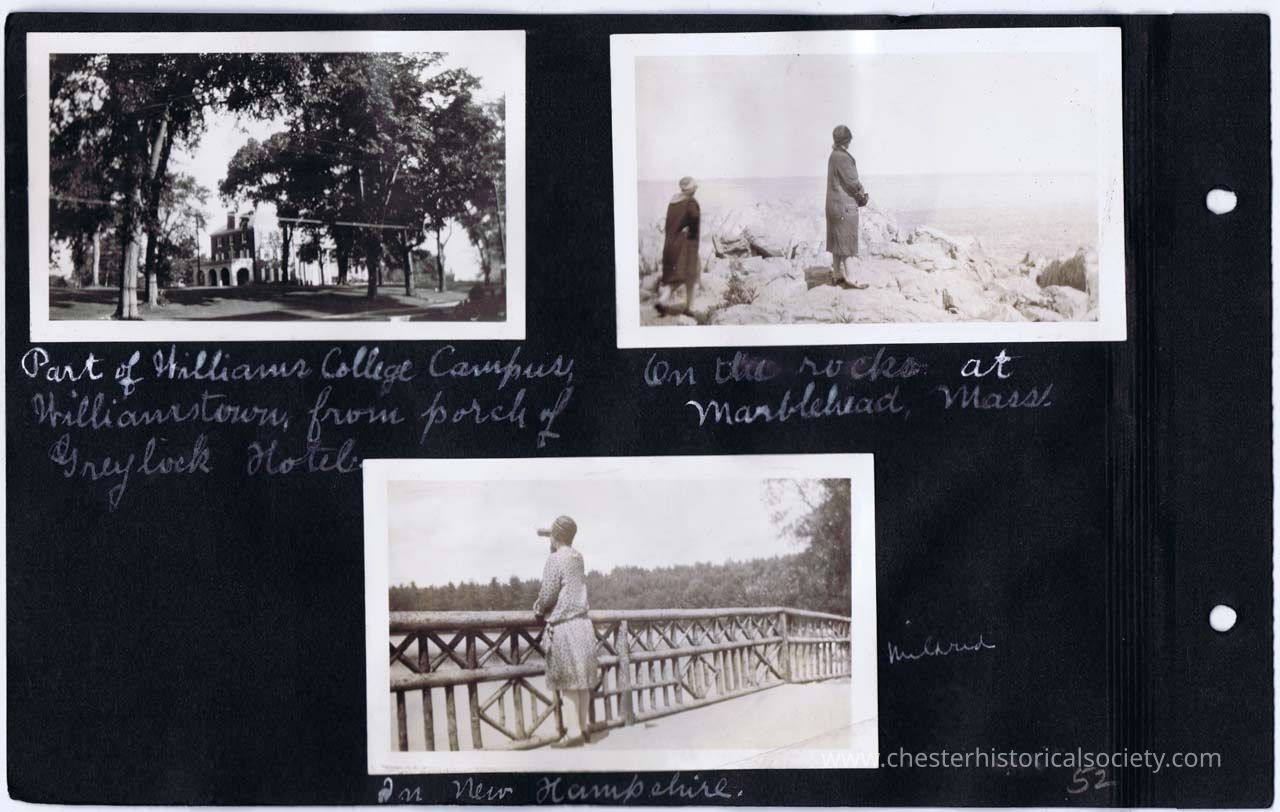 Part of Williams College Campus,
Williamstown, from porch of
Greylock Hotel.
On the rocks at
Marblehead, Mass.
Mildred
In New Hampshire.
www.chesterhistoricalsociety.com
52